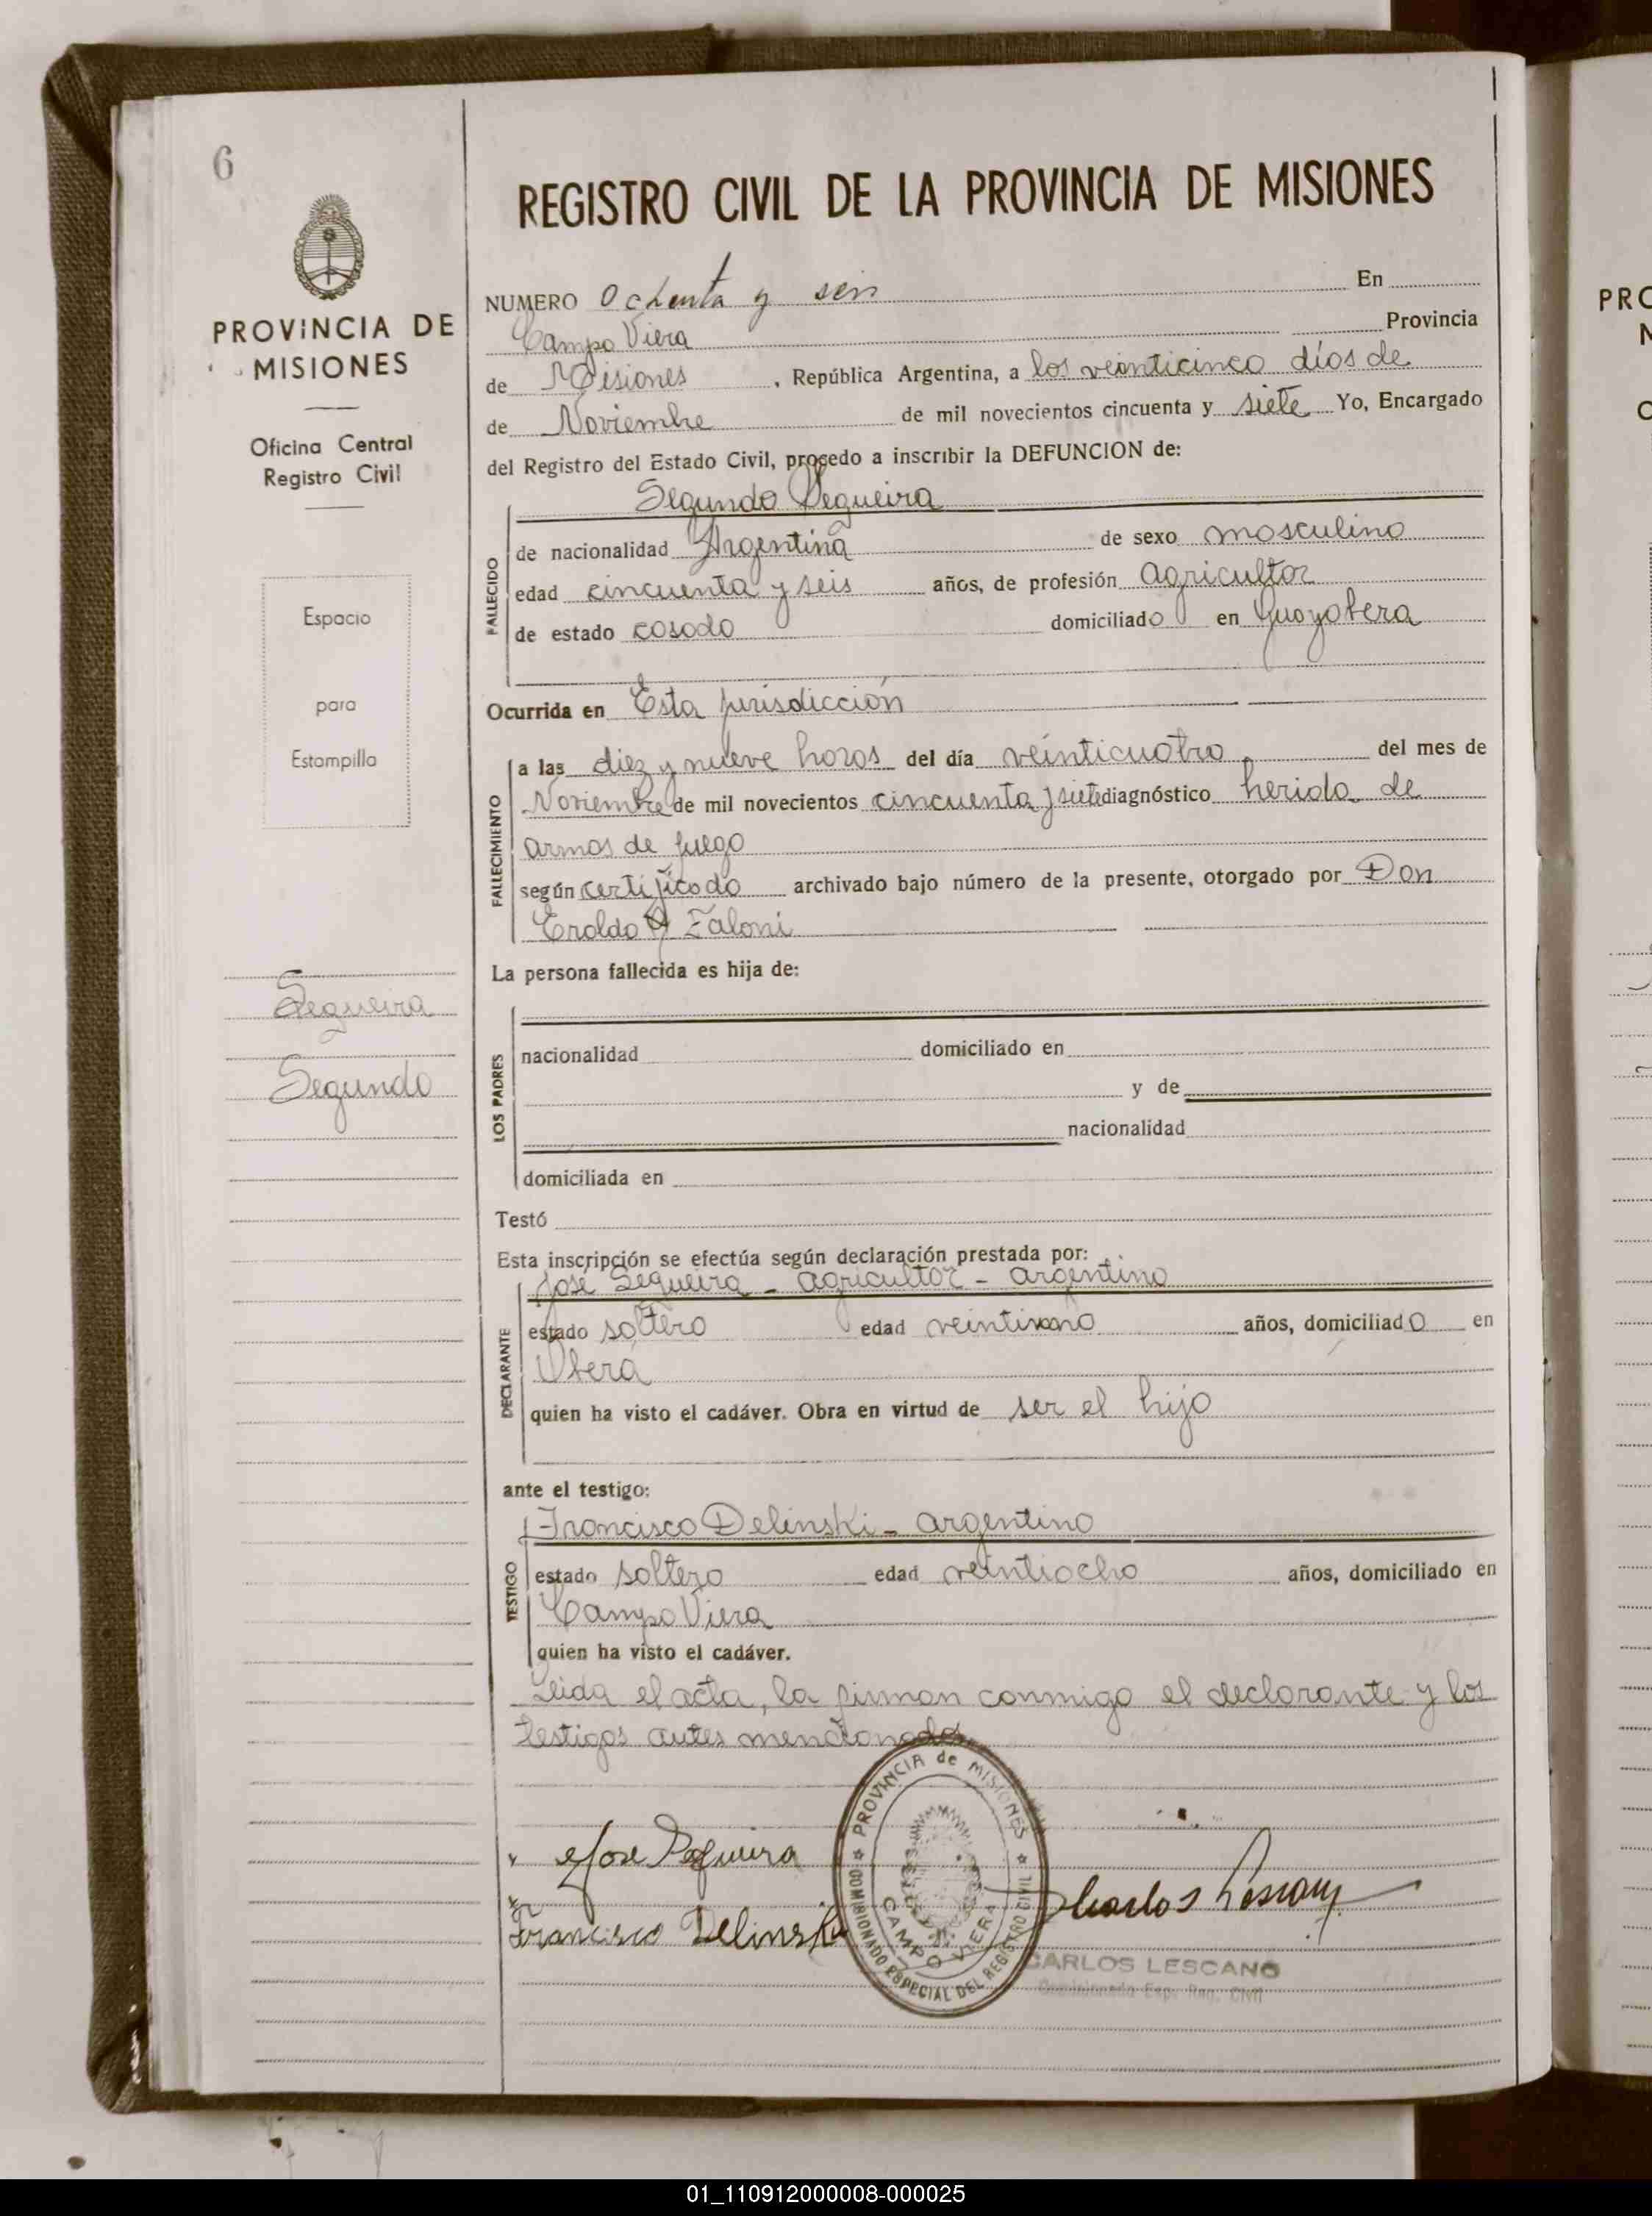 6
PROVINCIA DE
MISIONES
Oficina Central
Registro Civil
Espacio
para
Estampilla
Sequeira
Segundo
REGISTRO CIVIL DE LA PROVINCIA DE MISIONES
NUMERO Ochenta y seis En
Campo Viera Provincia
de Misiones , República Argentina, a los veinticinco días de
de Noviembre de mil novecientos cincuenta y siete Yo, Encargado
del Registro del Estado Civil, procedo a inscribir la DEFUNCION de:
Segundo Sequeira
FALLECIDO
de nacionalidad Argentina de sexo masculino
edad cincuenta y seis años, de profesión agricultor
de estado casado domiciliado en Guayabera
Ocurrida en Esta jurisdicción
FALLECIMIENTO
a las diez y nueve horas del día veinticuatro del mes de
Noviembre de mil novecientos cincuenta y siete diagnóstico herida de
armas de fuego
según certificado archivado bajo número de la presente, otorgado por Don
Eroldo Zaloni
La persona fallecida es hija de:
LOS PADRES
nacionalidad domiciliado en
y de
nacionalidad
domiciliada en
Testó
Esta inscripción se efectúa según declaración prestada por:
José Sequeira - agricultor - argentino
DECLARANTE
estado soltero edad años, domiciliado en
Oberá
quien ha visto el cadáver. Obra en virtud de ser el hijo
ante el testigo:
Francisco Delinski - argentino
TESTIGO
estado soltero edad veintiocho años, domiciliado en
Campo Viera
quien ha visto el cadáver.
Leida el acta, la firman conmigo el declarante y los
testigos antes mencionados
Jose Sequeira
Francisco Delinski
PROVINCIA de MISIONES
COMISIONADO ESPECIAL DEL REGISTRO CIVIL
CAMPO VIERA
Carlos Lescano
CARLOS LESCANO
Comisionado Esp. Reg. Civil
PRO
01_110912000008-000025